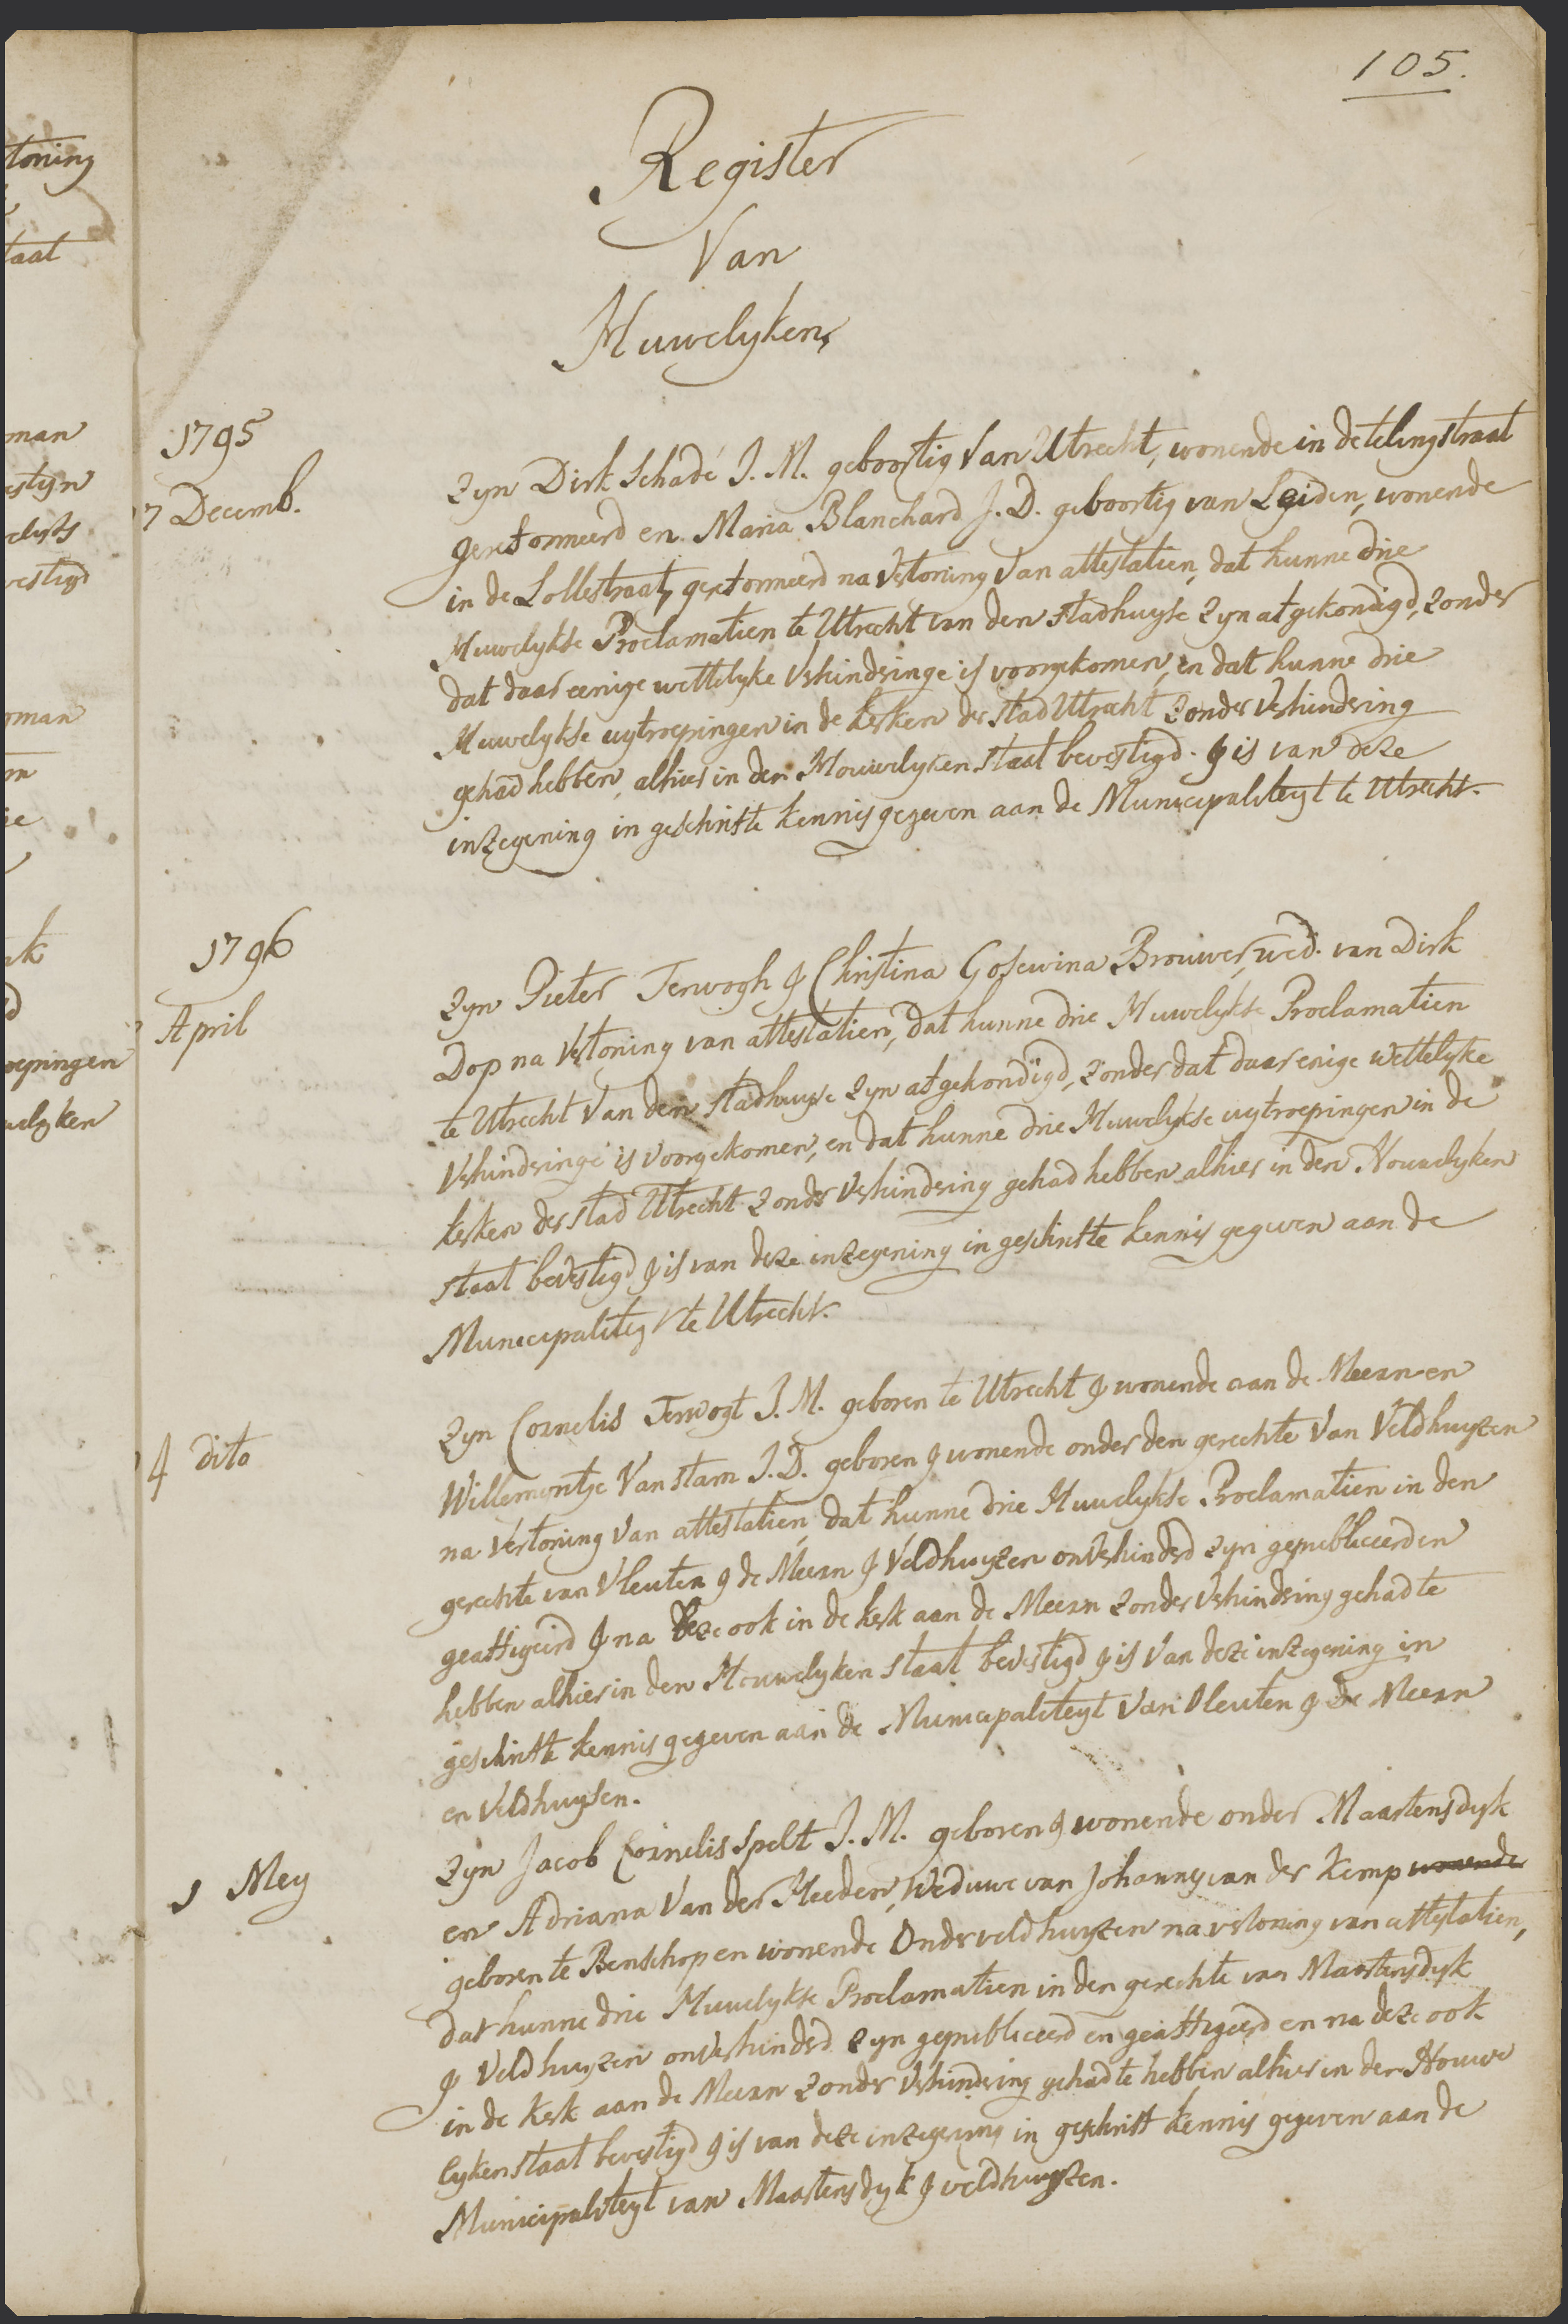 105.
Register
Van
Huwelyken,
1795
7 Decemb.
Zyn Dirk Schadé J. M. geboortig Van Utrecht, wonende in de telingstraat
gereformeerd en Maria Blanchard J. D. geboortig van Leiden, wonende
in de Lollestraat, gereformeerd na Vertoning Van attestatien, dat hunne drie
Huwelykse Proclamatien te Utrecht van den Stadhuyse Zyn afgekondigd, Zonder
dat daar eenige wettelyke Verhinderinge is voorgekomen, en dat hunne drie
Huwelykse uytroepingen in de kerken der Stad Utrecht Zonder Verhindering
gehad hebben, alhier in den Houwelyken Staat bevestigd. & is van deze
inzegening in geschrifte kennis gegeven aan de Municipaliteyt te Utrecht.
1796
April
Zyn Pieter Terwogh & Christina Gosewina Brouwer, wed. van Dirk
Dop na Vertoning van attestatien, dat hunne drie Huwelykse Proclamatien
te Utrecht Van den Stadhuyse Zyn afgekondigd, Zonder dat daar enige Wettelyke
Verhinderinge is Voorgekomen, en dat hunne drie Huwelykse uytroepingen in de
kerken der Stad Utrecht Zonder Verhindering gehad hebben alhier in den Houwelyken
Staat bevestigd & is van deze inzegening in geschrifte kennis gegeven aan de
Municipaliteyt te Utrecht.
4 dito
Zyn Cornelis Terwogt J. M. geboren te Utrecht & wonende aan de Meern en
Willemyntje Van Stam J. D. geboren & wonende onder den gerechte Van Veldhuyzen
na Vertoning Van attestatien, dat hunne drie Huwelykse Proclamatien in den
gerechte van Vleuten & de Meern & Veldhuyzen onverhinderd Zyn gepubliceerd en
geaffigeerd & na deze ook in de kerk aan de Meern Zonder Verhindering gehad te
hebben alhier in den Houwelyken Staat bevestigd & is Van deze inzegening in
geschrifte kennis gegeven aan de Municipaliteyt Van Vleuten & De Meern
en Veldhuysen.
1 Mey
Zyn Jacob Cornelis Spelt J. M. geboren & wonende onder Maartensdyk
en Adriana Van der Heeden, Weduwe van Johannes van der Kemp wonende
geboren te Benschop en wonende Onder veldhuyzen na vertoning van attestatien,
dat hunne drie Huwelykse Proclamatien in den gerechte van Maartensdyk
& Veldhuyzen onverhinderd Zyn gepubliceerd en geaffigeerd en na deze ook
in de kerk aan de Meern Zonder Verhindering gehad te hebben alhier in den Houwe
lyken staat bevestigd & is van deze inzegening in geschrift kennis gegeven aan de
Municipaliteyt van Maartensdyk & veldhuyzen.